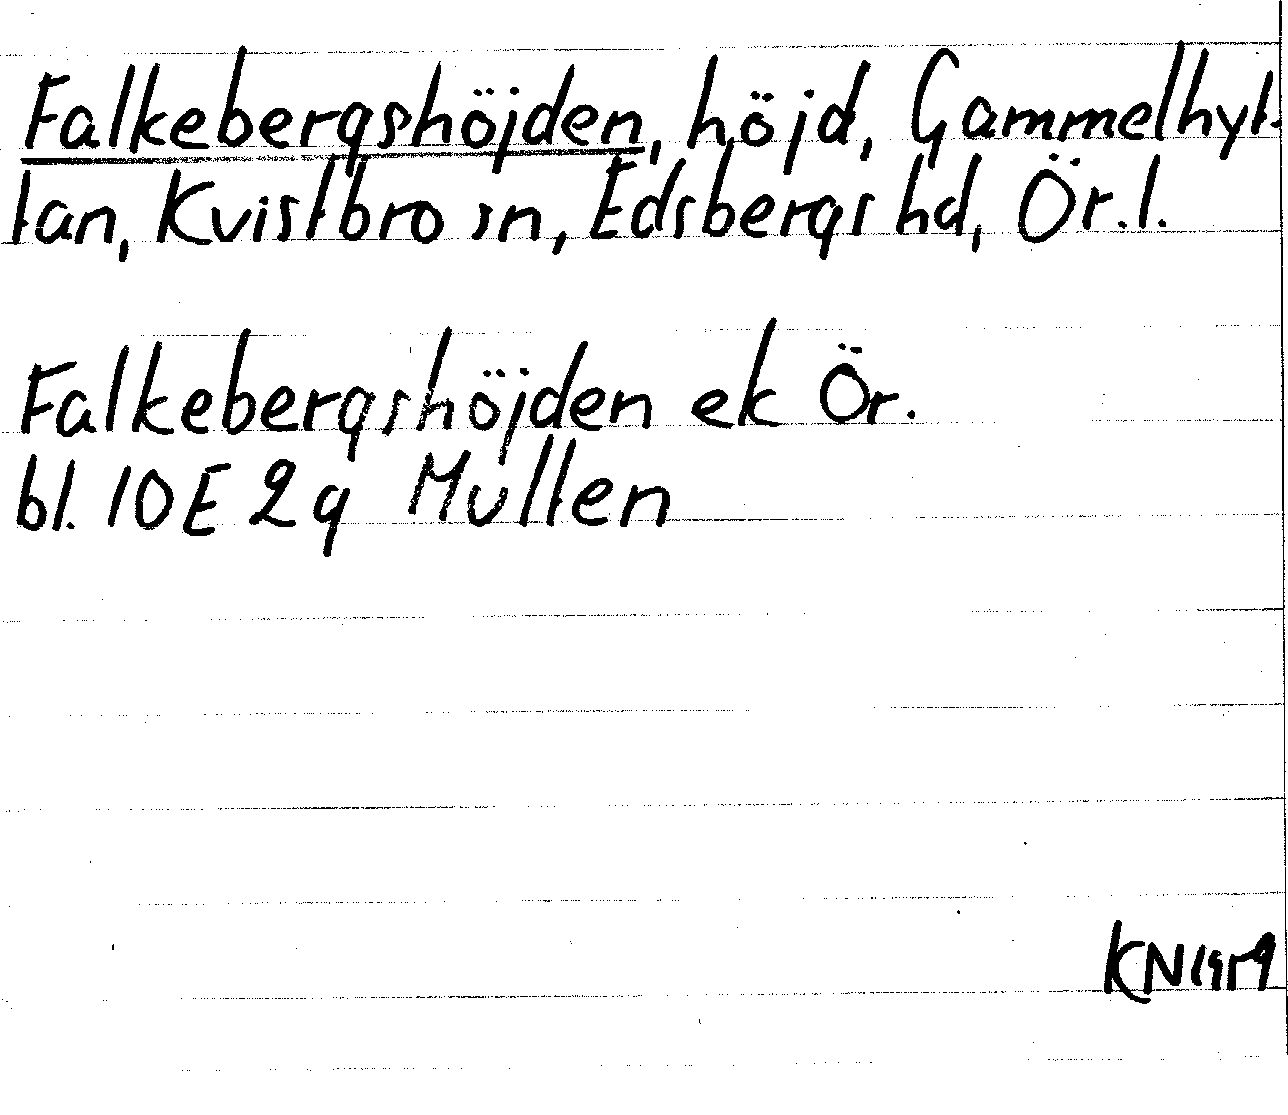 Falkebergshöjden, höjd, Gammelhyt-
tan, Kvistbro sn, Edsbergs hd, Ör.l.
Falkebergshöjden ek Ör.
bl. 10E 2g Mullen
KN